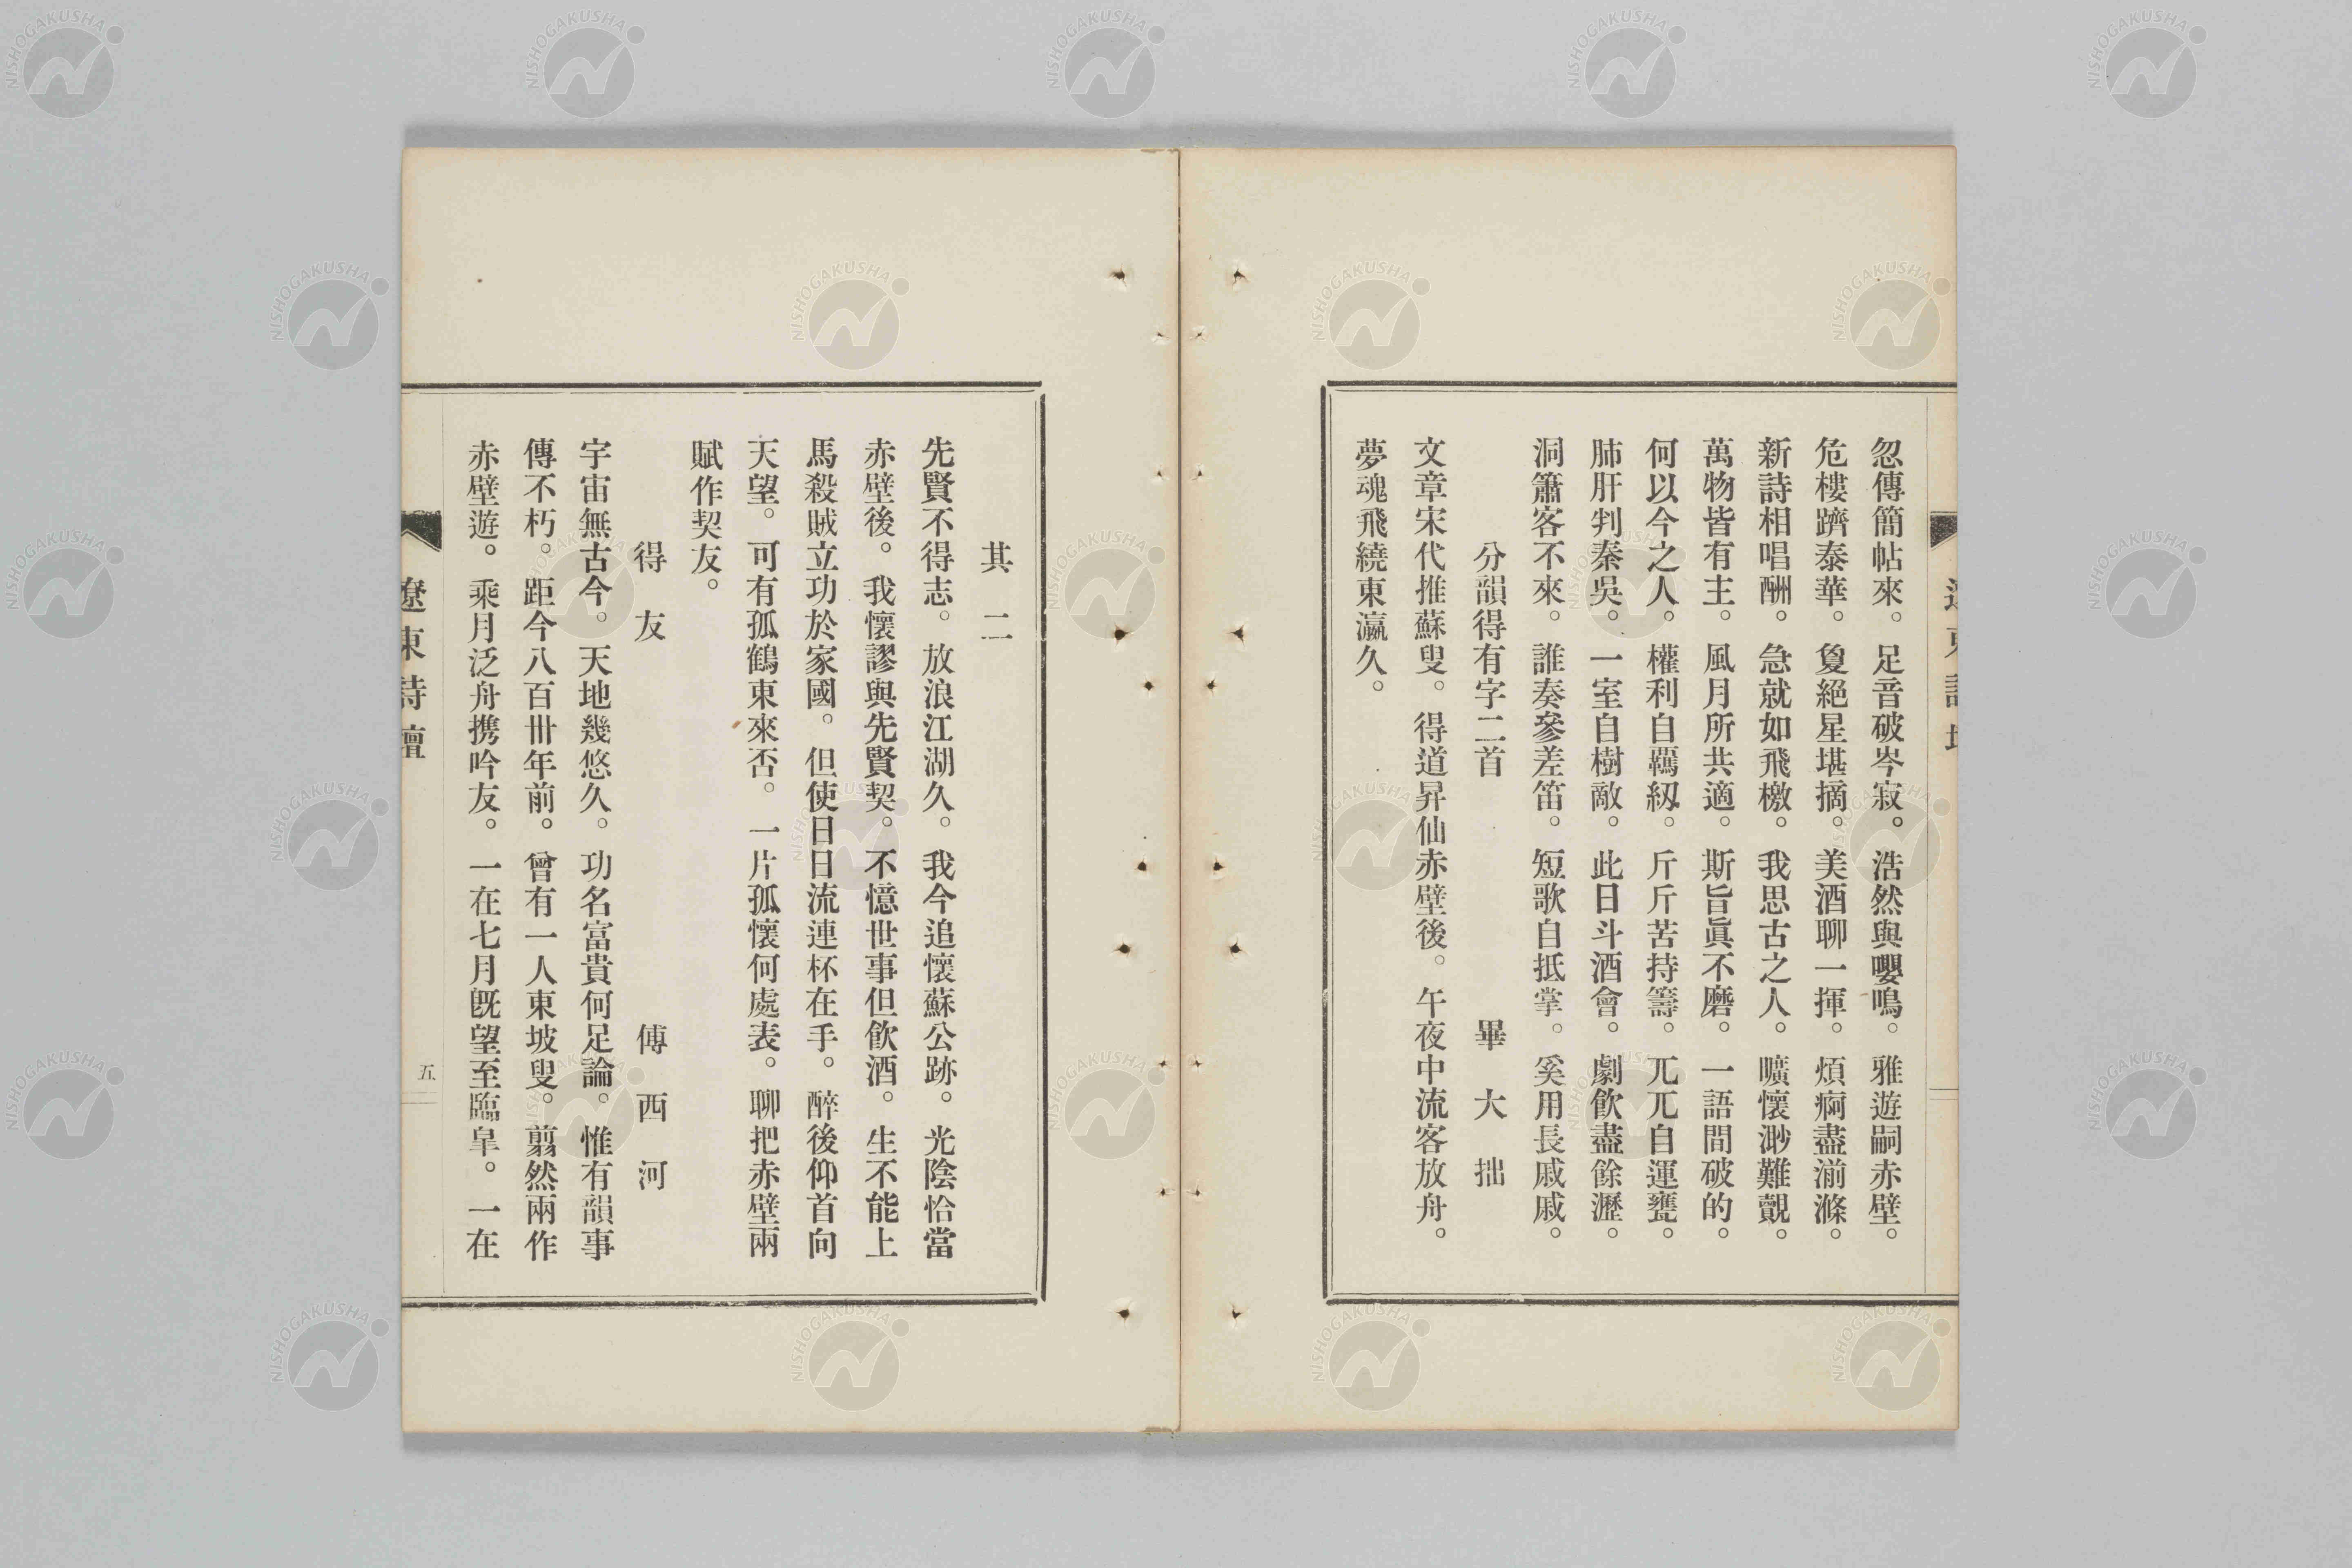 忽傳簡帖來。足音破岑寂。浩然與嚶鳴。雅遊嗣赤壁。
危樓躋泰華。夐絕星堪摘。美酒聊一揮。煩痾盡湔滌。
新詩相唱酬。急就如飛檄。我思古之人。曠懷渺難覿。
萬物皆有主。風月所共適。斯旨眞不磨。一語間破的。
何以今之人。權利自羈紲。斤斤苦持籌。兀兀自運甕。
肺肝判秦吳。一室自樹敵。此日斗酒會。劇飮盡餘瀝。
洞簫客不來。誰奏參差笛。短歌自抵掌。奚用長戚戚。
分韻得有字二首　畢大拙
文章宋代推蘇叟。得道昇仙赤壁後。午夜中流客放舟。
夢魂飛繞東瀛久。
其二
先賢不得志。放浪江湖久。我今追懷蘇公跡。光陰恰當
赤壁後。我懷謬與先賢契。不憶世事但飮酒。生不能上
馬殺賊立功於家國。但使日日流連杯在手。醉後仰首向
天望。可有孤鶴東來否。一片孤懷何處表。聊把赤壁兩
賦作契友。
得友　傅西河
宇宙無古今。天地幾悠久。功名富貴何足論。惟有韻事
傳不朽。距今八百卅年前。曾有一人東坡叟。翦然兩作
赤壁遊。乘月泛舟携吟友。一在七月旣望至臨皐。一在
遼東詩壇
五
NISHOGAKUSHA